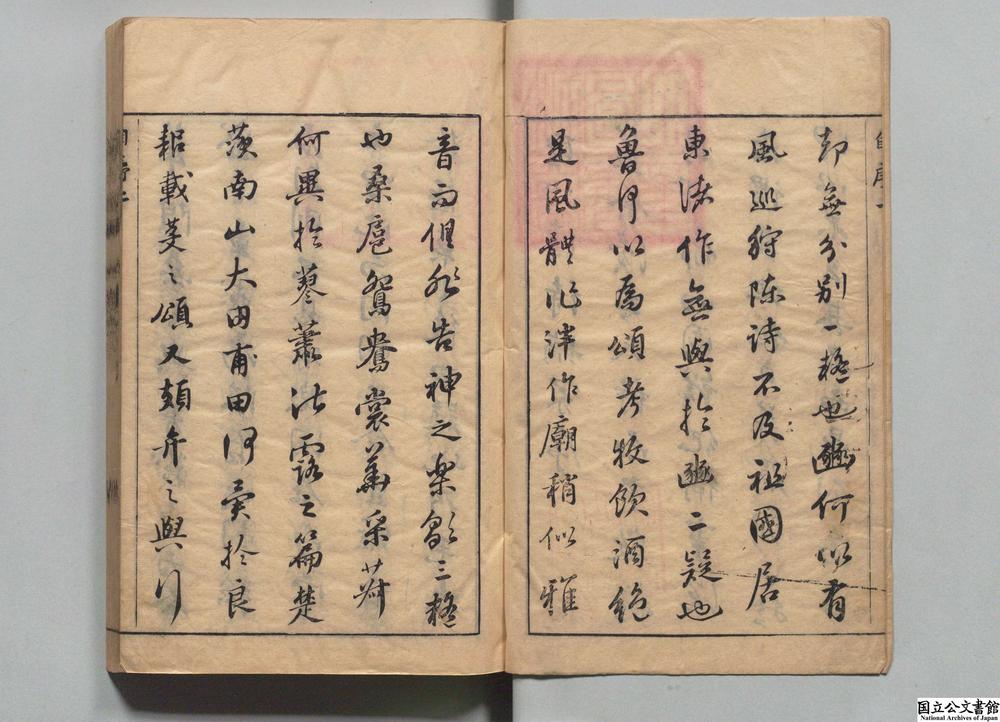 自序 一
却無分別一疑也豳何以有
風巡狩陳詩不及祖國居
東諸作無與於豳二疑也
魯何以為頌考牧飲酒絶
是風體作泮作廟稍似雅
音而俱非告神之樂歌三疑
也桑扈鴛鴦裳華采菽
何異於蓼蕭湛露之篇楚
茨南山大田甫田何異於良
耜載芟之頌又頍弁之與行
国立公文書館
National Archives of Japan